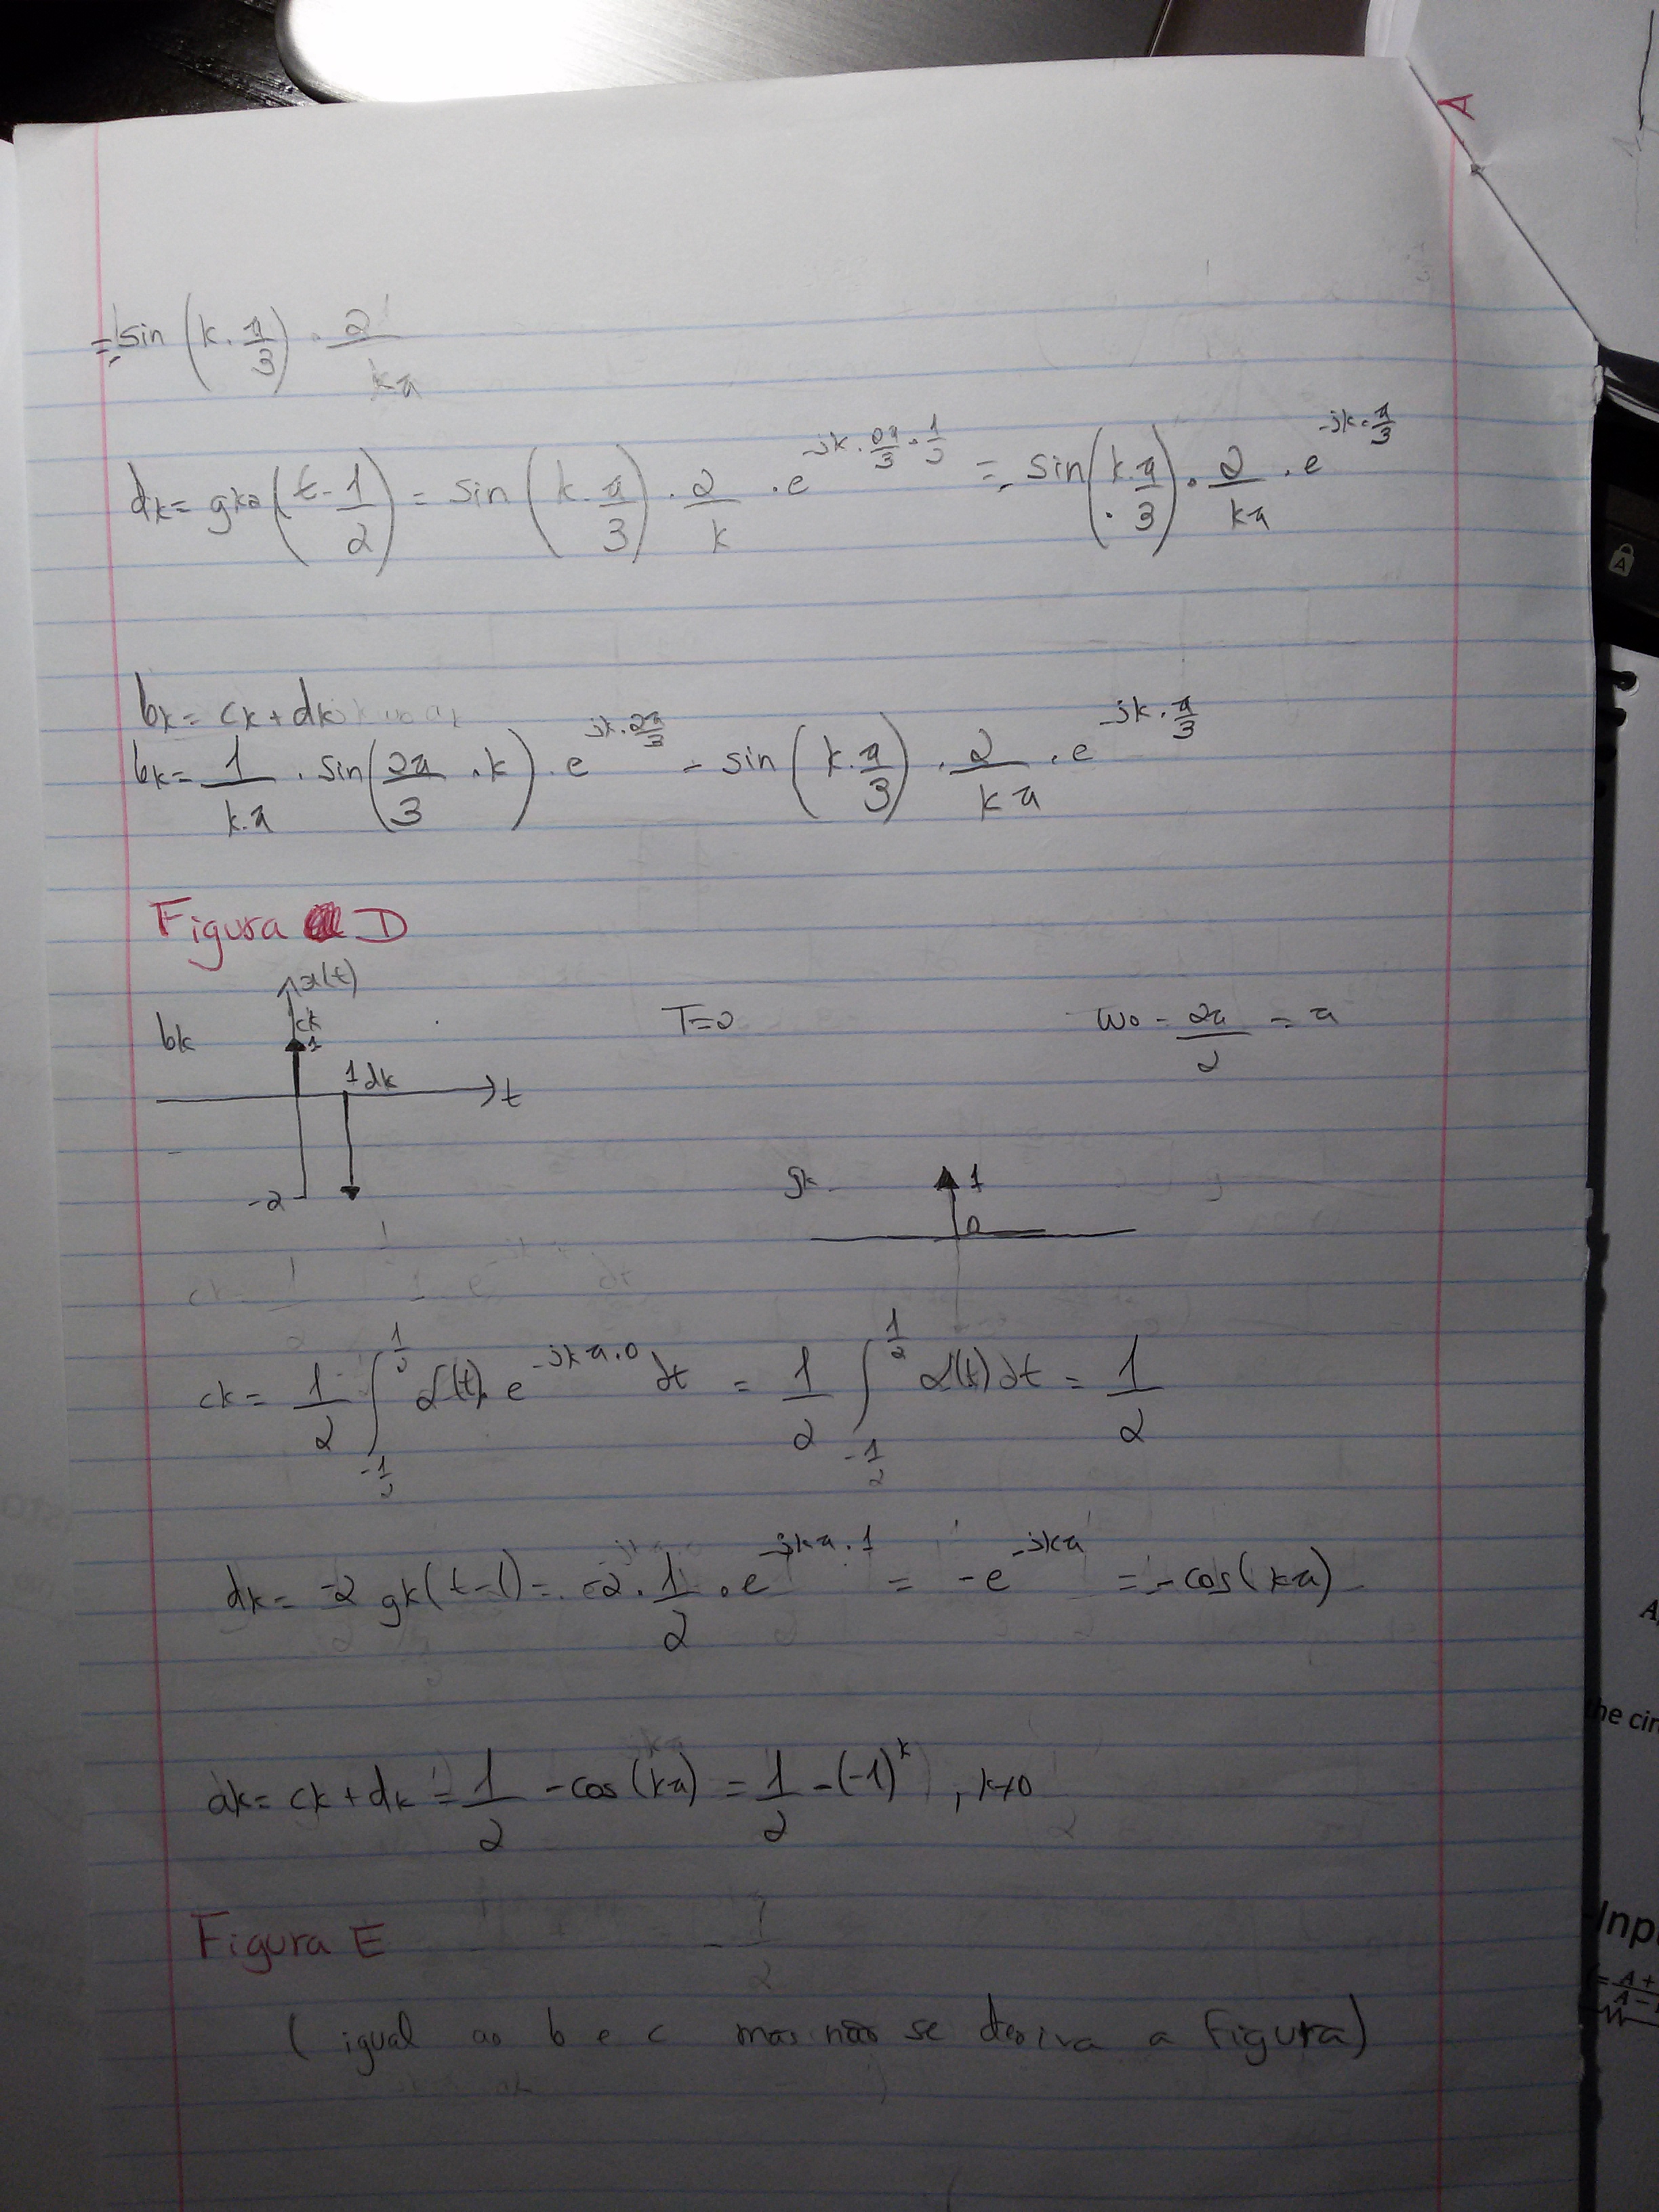 A
= sin (k · π/3) · 2/kπ
dk = gk2 (t - 1/2) = sin (k · π/3) · 2/k · e^(-jk · 2π/3 · 1/2) = sin (k · π/3) · 2/kπ · e^(-jk · π/3)
bk = ck + dk
bk = 1/k.π · sin (2π/3 · k) · e^(jk · 2π/3) - sin (k · π/3) · 2/kπ · e^(-jk · π/3)
Figura D
x(t)
bk ck 1 T=2 wo = 2π/2 = π
1 dk t
gk 1
-2
0
ck = 1/2 ∫_{-1/2}^{1/2} δ(t) · e^(-jkπ.0) dt = 1/2 ∫_{-1/2}^{1/2} δ(t) dt = 1/2
dk = -2 gk(t-1) = -2 · 1/2 · e^(-jkπ.1) = -e^(-jkπ) = -cos(kπ)
ak = ck + dk = 1/2 - cos(kπ) = 1/2 - (-1)^k , k≠0
Figura E
( igual ao b e c mas não se deriva a figura)
he cir
Inp